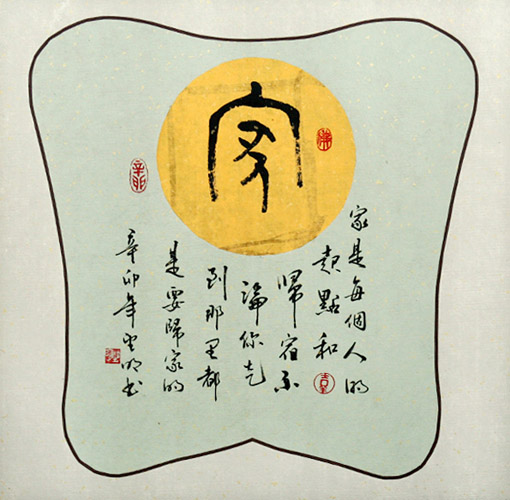 家
家是每個人的
起點和
歸宿不
論你走
到那里都
是要歸家的
辛卯年明书
辛卯